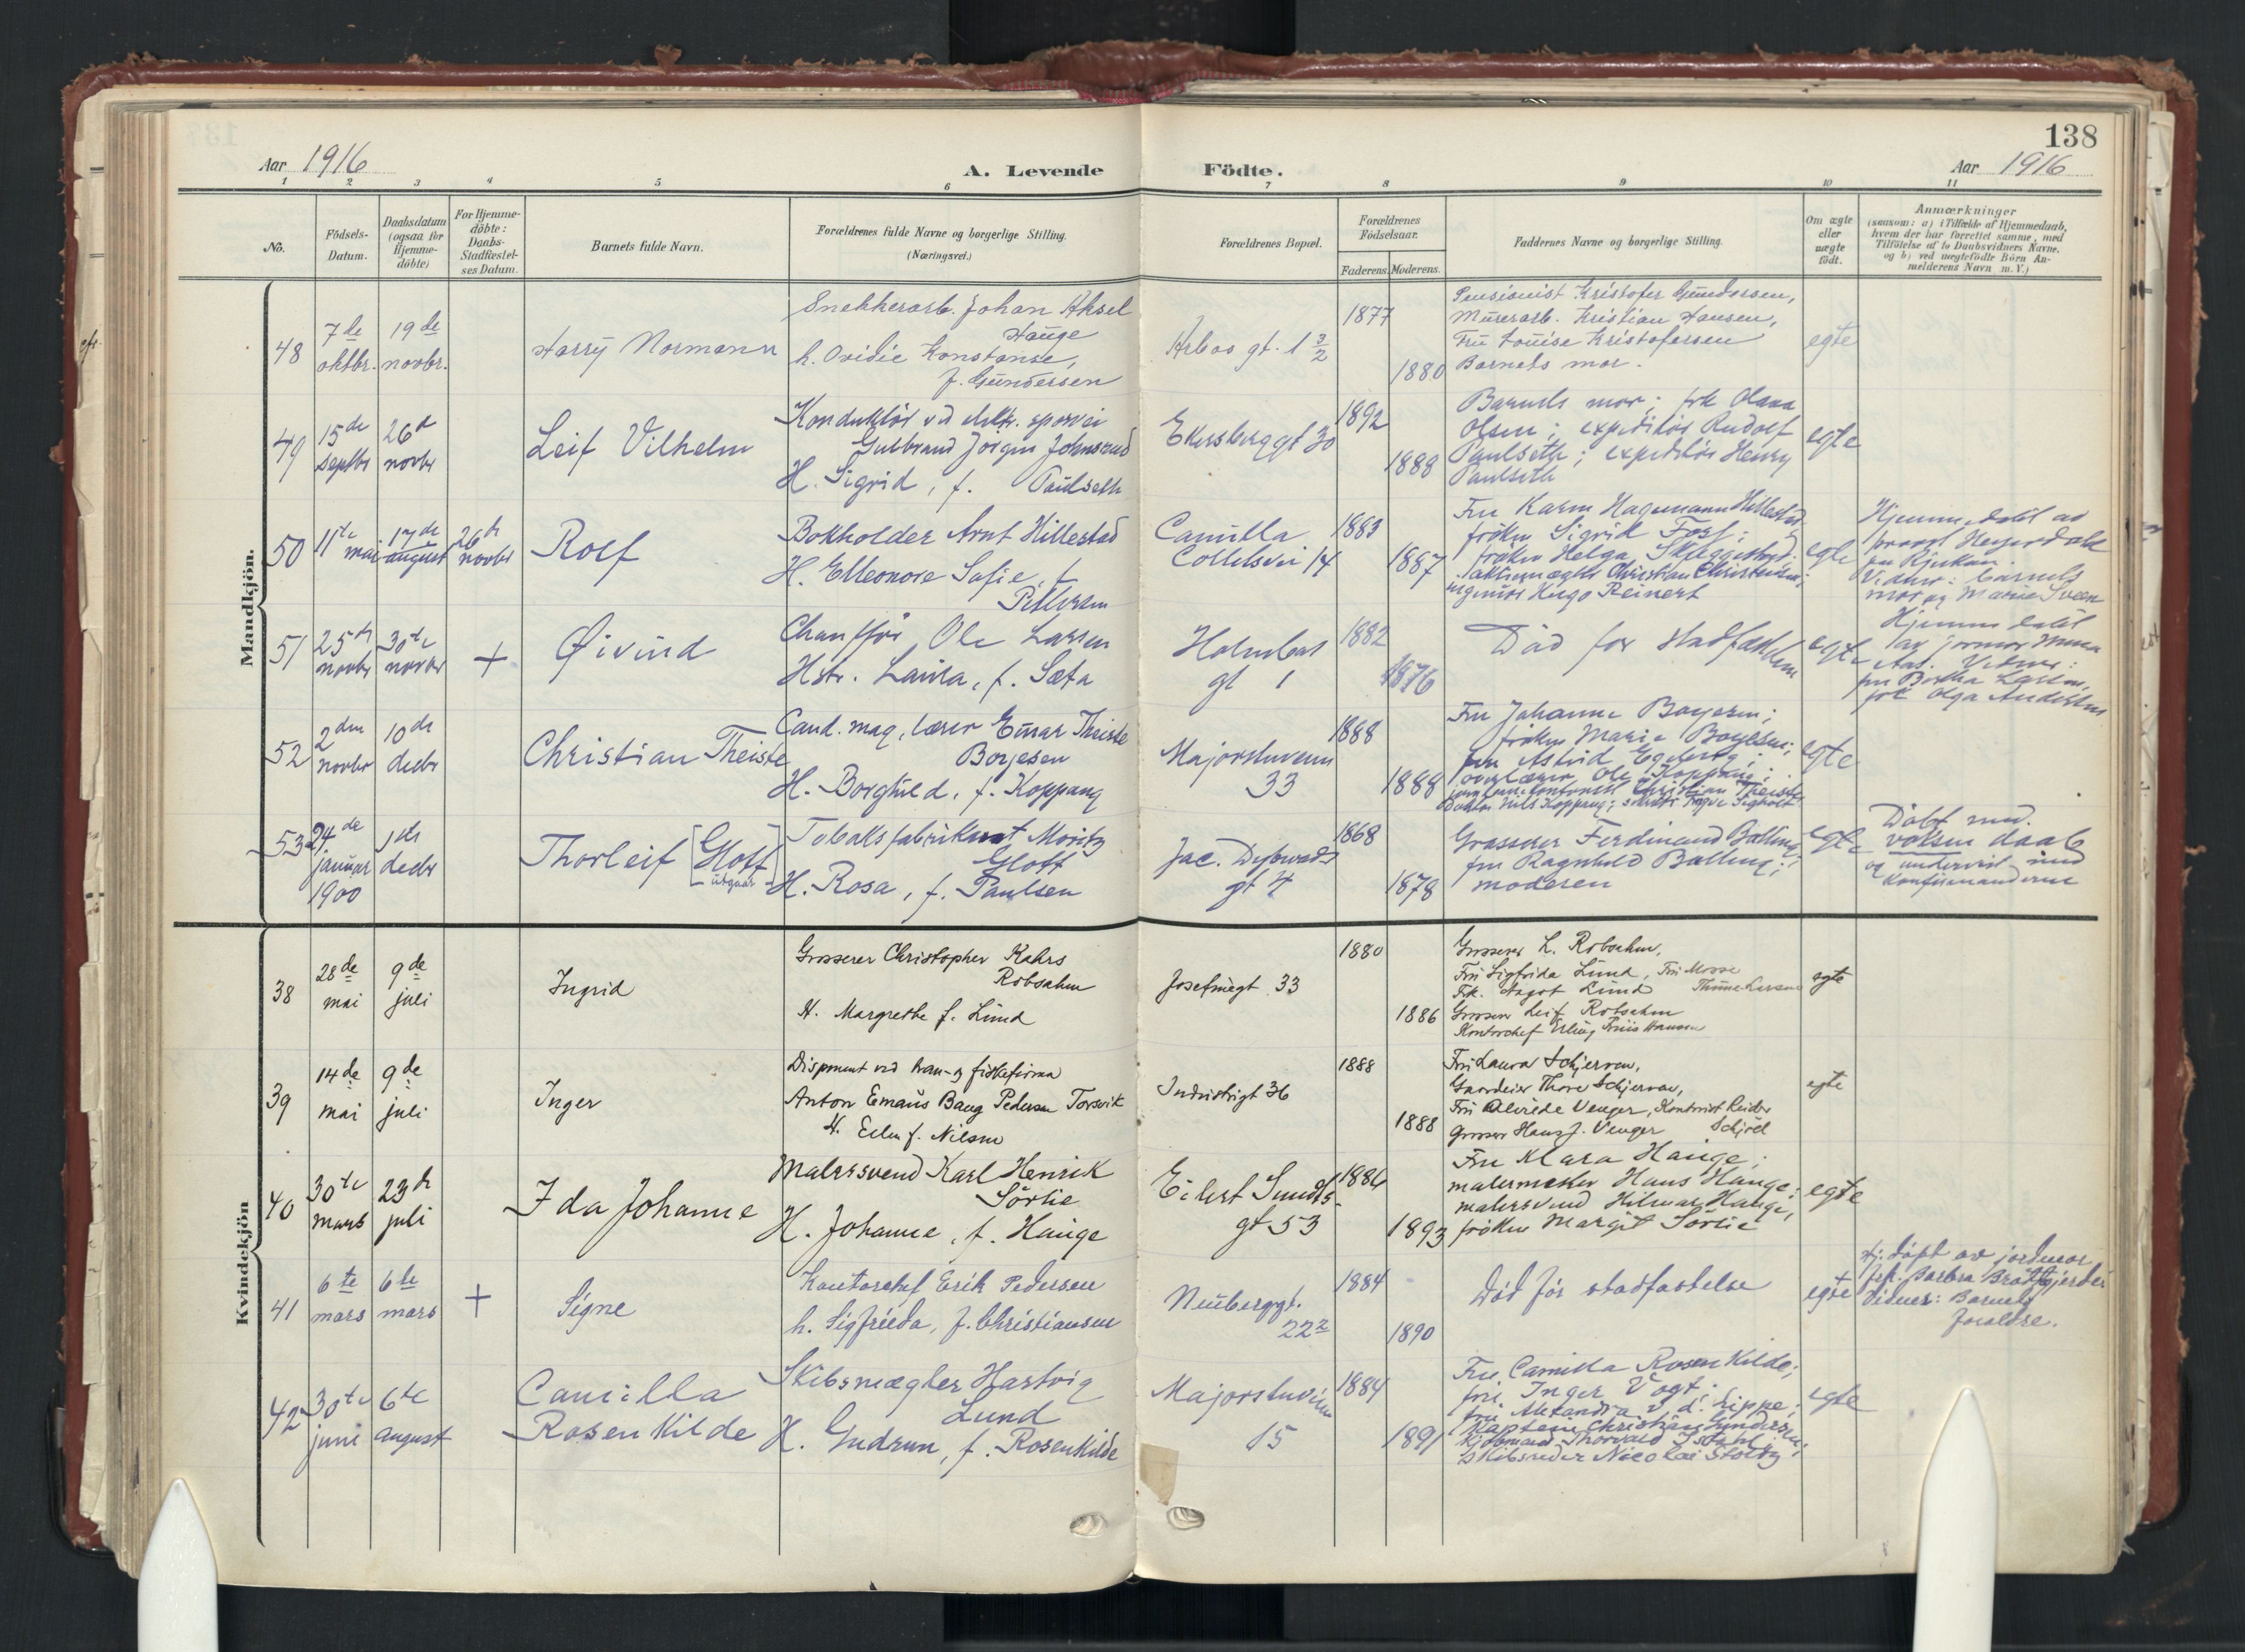 138
Aar 1916
A. Levende
Födte.
Aar 1916
1 2 3 4 5 6 7 8 9 10 11
No.
Födsels-
Datum.
Daabsdatum
(ogsaa for
Hjemme-
döbte)
For Hjemme-
döbte:
Daabs-
Stadfæstel-
ses Datum.
Barnets fulde Navn.
Forældrenes fulde Navne og borgerlige Stilling.
(Næringsvei.)
Forældrenes Bopæl.
Forældrenes
Födselsaar.
Faderens. Moderens.
Faddernes Navne og borgerlige Stilling.
Om ægte
eller
uægte
födt.
Anmærkninger
(saasom: a) i Tilfælde af Hjemmedaab,
hvem der har forrettet samme, med
Tilföielse af to Daabsvidners Navne.
og b) ved uægtefödte Börn An-
melderens Navn m. V.)
Mandkjön.
48
7de
oktbr.
19de
novbr.
Harry Normann
Snekkerarb. Johan Aksel
Hauge
h. Ovidie Konstanse,
f. Gundersen
Arbos gt. 1 3/2
1877
1880
Pensionist Kristofer Gundersen,
Murerarb. Kristian Hansen,
Fru Louise Kristofersen
Barnets mor.
egte
49
15de
septbr
26de
novbr
Leif Vilhelm
Konduktör ved elektr. sporvei
Gulbrand Jörgen Johnsrud
H. Sigrid, f. Paulseth
Ekersberggt 30
1892
1888
Barnets mor; frk Olava
Olsen; expeditör Rudolf
Paulseth; expeditör Henry
Paulseth
egte
50
11te
mai
17de
august
26de
novbr
Rolf
Bokholder Arnt Hillestad
H. Elleonore Sofie, f.
Pettersen
Camilla
Colletsvei 14
1883
1887
Fru Karen Hagemann Hillestad
fröken Sigrid Foss;
fröken Helga Skeggestad.
aktiemægler Christian Christensen;
ingeniör Hugo Reinert
egte
Hjemmedöbt av
provst Heyerdahl
paa Rjukan
Vidner: barnets
mor og Marie Sveen
51
25de
novbr
30te
novbr
+
Øivind
Chaufför Ole Larsen
Hstr. Laura, f. Sæta
Holmboes
gt 1
1882
1876
Död för stadfæstelsen
egte
Hjemmedöbt
av jormor Mina
Aas. Vidner:
fru Bertha Larsen,
frk Olga Andersen
52
2den
novbr
10de
decbr
Christian Theiste
Cand. mag, lærer Einar Theiste
Borjesen
H. Borghild, f. Koppang
Majorstuveien
33
1888
1888
Fru Johanne Boyesen;
fröken Marie Boyesen;
fru Astrid Egeberg;
overlærer Ole Koppang;
Christian Theiste
Doktor Nils Koppang;
egte
53
24de
januar
1900
1ste
decbr
Thorleif [Glott]
utgaar
Tobaksfabrikant Moritz
Glott
H. Rosa, f. Paulsen
Jac. Dybwads
gt 4
1868
1878
Grosserer Ferdinand Bælling;
fru Ragnhild Bælling;
moderen
egte
Döbt med
voksen daab
og undervist med
konfirmanderne
Kvindekjön
38
28de
mai
9de
juli
Ingrid
Grosserer Christopher Kahrs
Robsahm
H. Margrethe f. Lund
Josefinegt 33
1880
1886
Grosserer L. Robsahm,
Fru Sigfrida Lund, Fru Mosse
Frk. Aagot Lund Thune-Larsen
Grosserer Leif Robsahm
Kontorchef Erling Friis Hansen
egte
39
14de
mai
9de
juli
Inger
Disponent ved tran- og fiskefirma
Anton Emaus Bang Pedersen Torsvik
H. Ellen f. Nilsen
Industrigt 36
1888
1888
Fru Laura Schjervan,
Gaardeier Thore Schjervan,
Fru Alvilde Venger, Kontorist Reidar
Grosserer Hans J. Venger Schjöll
egte
40
30te
mars
23de
juli
Ida Johanne
Malersvend Karl Henrik
Sörlie
H. Johanne, f. Hauge
Eilert Sundts-
gt 53
1886
1893
Fru Klara Hauge;
malermester Hans Hauge;
malersvend Hilmar Hauge;
fröken Margit Sörlie
egte
41
6te
mars
6te
mars
+
Signe
Kontorchef Erik Pedersen
h. Sigfrieda, f. Christiansen
Neuberggt.
22 2
1884
1890
Död för stadfæstelse
egte
Hj. döpt av jordmor
frk. Barbra Brattgjerdet
Vidner: Barnets
forældre.
42
30te
juni
6te
august
Camilla
Rosenkilde
Skibsmægler Hartvig
Lund
H. Gudrun, f. Rosenkilde
Majorstuveien
15
1884
1891
Fru Camilla Rosenkilde;
fru Inger Vogt;
fru Alexandra v. d. Lippe;
Kaptein Christian Gundersen;
Kjöbmand Thorvald
skibsreder Nicolai Stolby
egte